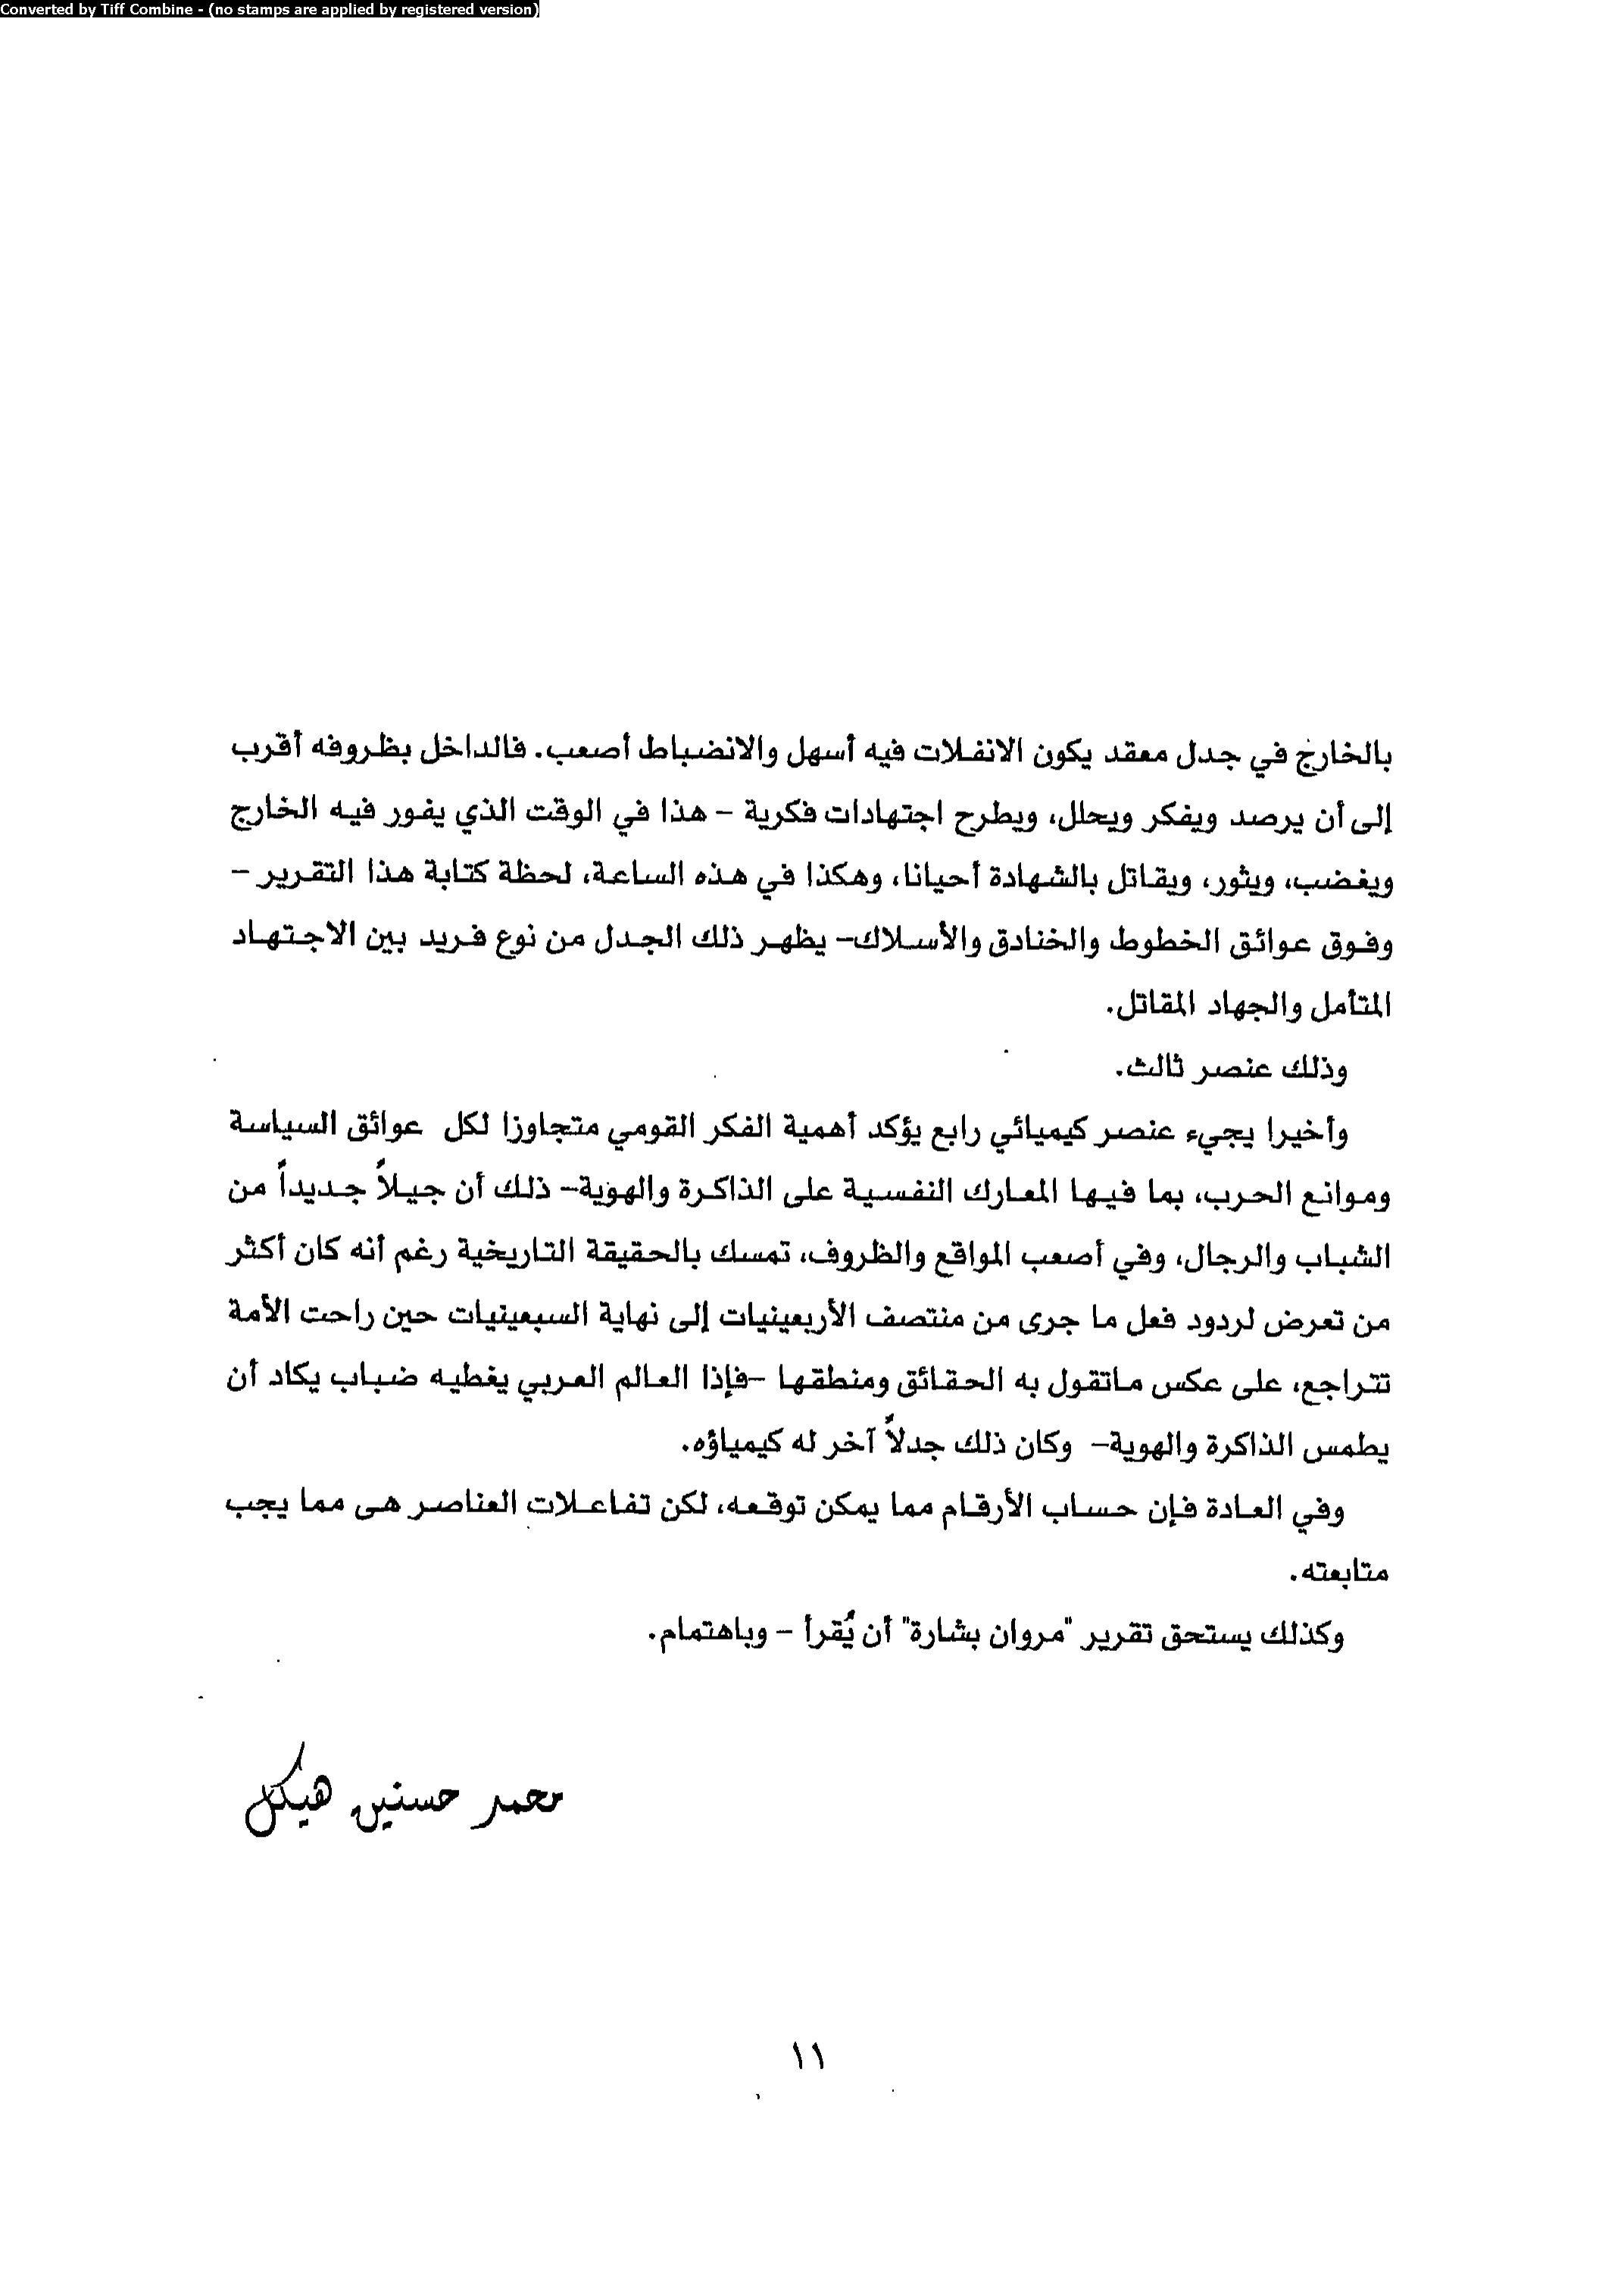 Converted by Tiff Combine - (no stamps are applied by registered version)
بالخارج في جدل معقد يكون الانفلات فيه أسهل والانضباط أصعب. فالداخل بظروفه أقرب
إلى أن يرصد ويفكر ويحلل، ويطرح اجتهادات فكرية – هذا في الوقت الذي يفور فيه الخارج
ويغضب، ويثور، ويقاتل بالشهادة أحيانا، وهكذا في هذه الساعة، لحظة كتابة هذا التقرير –
وفوق عوائق الخطوط والخنادق والأسلاك– يظهر ذلك الجدل من نوع فريد بين الاجتهاد
المتأمل والجهاد المقاتل.
وذلك عنصر ثالث.
وأخيرا يجيء عنصر كيميائي رابع يؤكد أهمية الفكر القومي متجاوزا لكل عوائق السياسة
وموانع الحرب، بما فيها المعارك النفسية على الذاكرة والهوية– ذلك أن جيلاً جديداً من
الشباب والرجال، وفي أصعب المواقع والظروف، تمسك بالحقيقة التاريخية رغم أنه كان أكثر
من تعرض لردود فعل ما جرى من منتصف الأربعينيات إلى نهاية السبعينيات حين راحت الأمة
تتراجع، على عكس ماتقول به الحقائق ومنطقها –فإذا العالم العربي يغطيه ضباب يكاد أن
يطمس الذاكرة والهوية– وكان ذلك جدلاً آخر له كيمياؤه.
وفي العادة فإن حساب الأرقام مما يمكن توقعه، لكن تفاعلات العناصر هى مما يجب
متابعته.
وكذلك يستحق تقرير "مروان بشارة" أن يُقرأ – وباهتمام.
محمد حسنين هيكل
١١